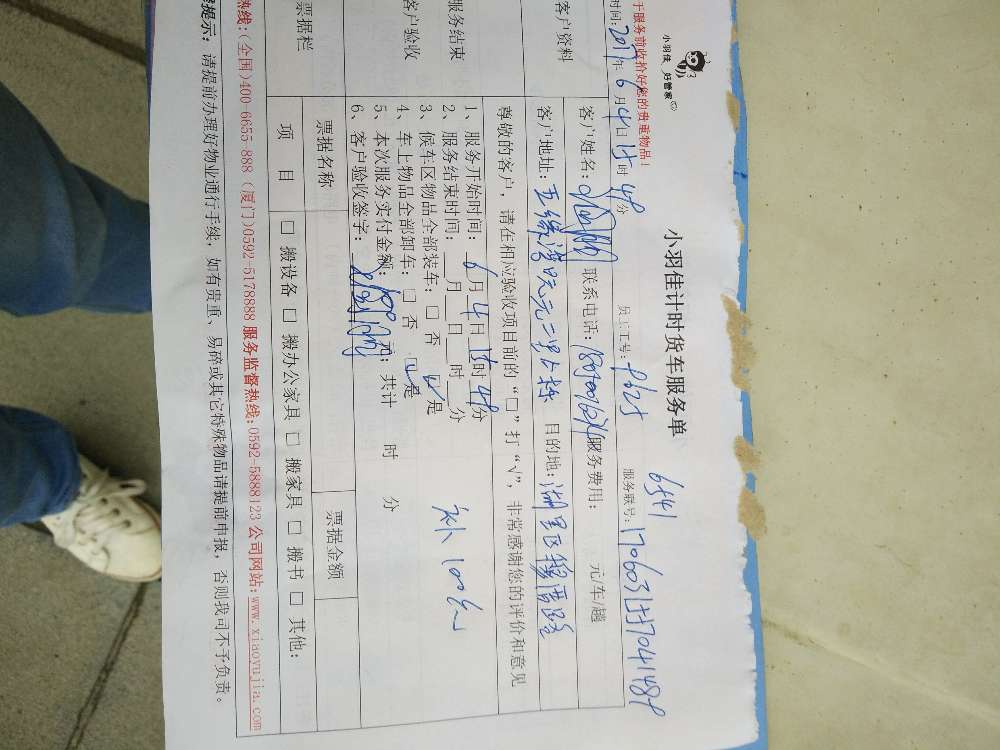 小羽佳 好管家
小羽佳计时货车服务单
6541
于服务前收拾好您的贵重物品!
时间: 2017年6月4日15时48分 员工工号: 服务联号:
客户资料
客户姓名: 联系电话: 服务费用: 元/车/趟
客户地址: 目的地: 湖里区
尊敬的客户, 请在相应验收项目前的“□”打“√”, 非常感谢您的评价和意见
服务结束
客户验收
1、服务开始时间: 6月4日15时48分
2、服务结束时间: 月 日 时 分
3、候车区物品全部装车: □ 否 ☑ 是
4、车上物品全部卸车: □ 否 ☑ 是
5、本次服务实付金额: 元; 共计 时 分
6、客户验收签字:
补100元
票据栏
票据名称 票据金额
项目 □ 搬设备 □ 搬办公家具 □ 搬家具 □ 搬书 □ 其他:
热线: (全国)400-6655-888 (厦门)0592-5178888 服务监督热线: 0592-5888123 公司网站: www.xiaoyujia.com
提示: 请提前办理好物业通行手续, 如有贵重、易碎或其它特殊物品请提前申报, 否则我司不予负责。